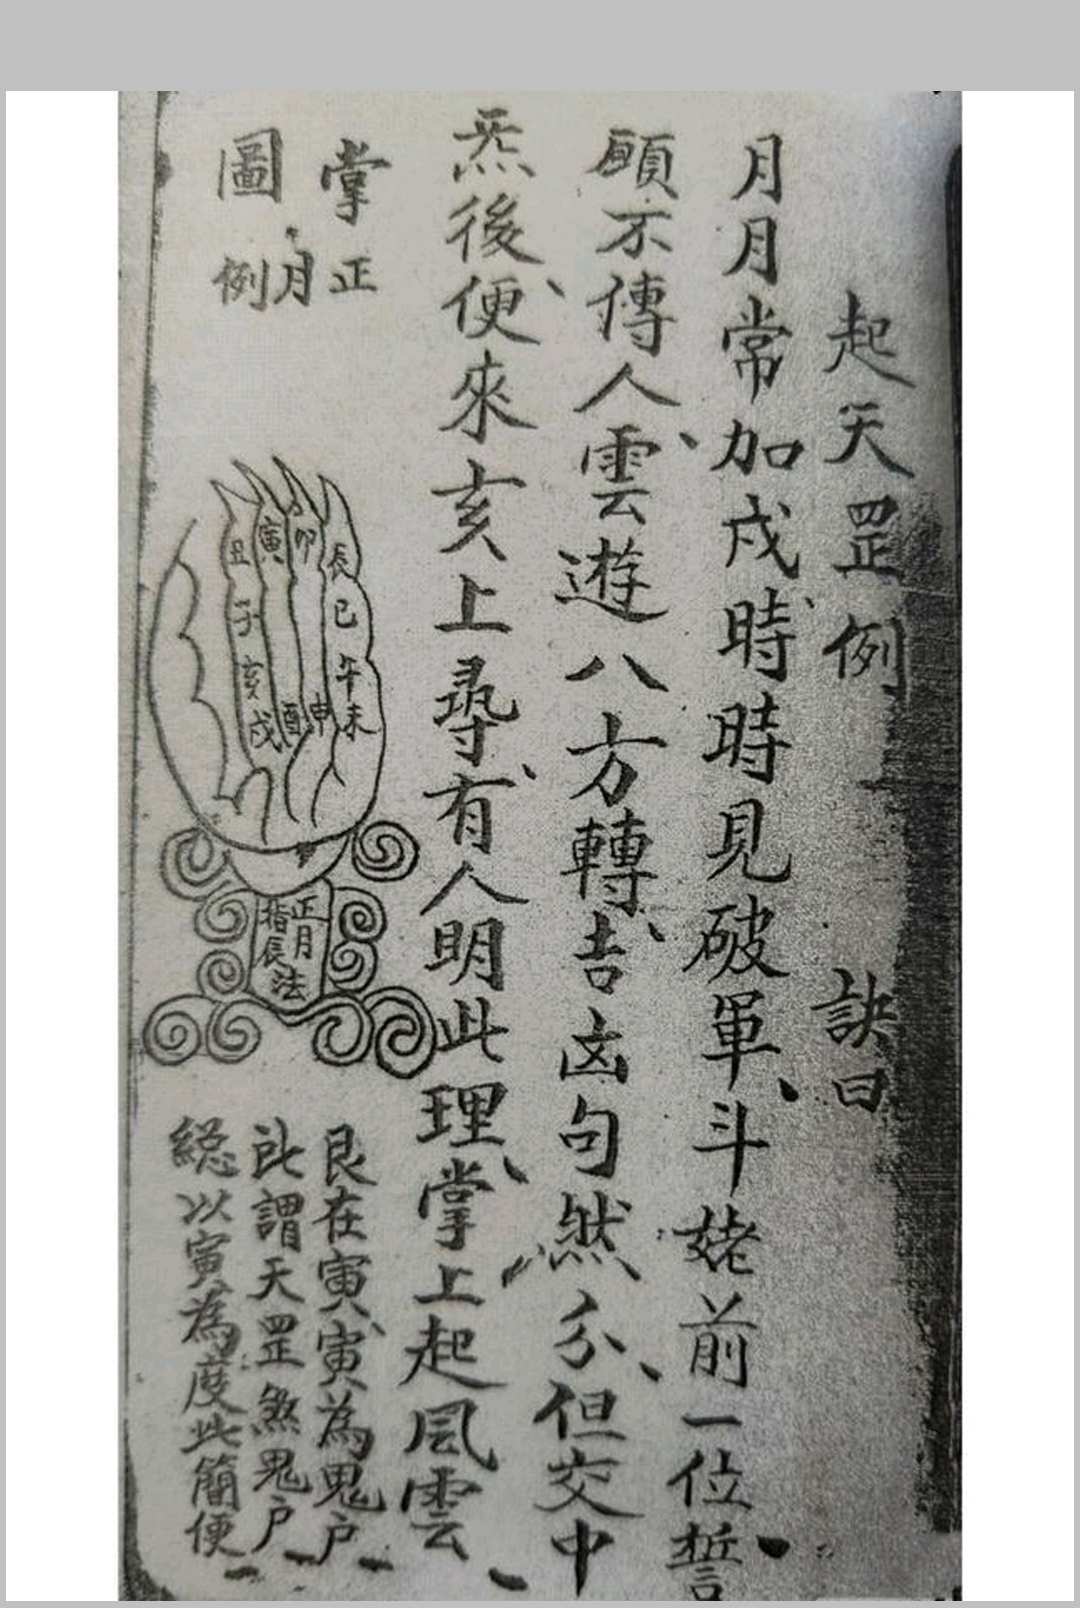 起天罡例 訣曰
月月常加戌時時見破軍斗姥前一位誓
願不傳人雲遊八方轉吉凶句然分但交中
炁後便來亥上尋有人明此理掌上起風雲
掌圖
正月例
辰巳午未申酉戌亥子丑寅卯
正月指辰法
艮在寅寅為鬼户
此謂天罡煞鬼户
総以寅為度此簡便